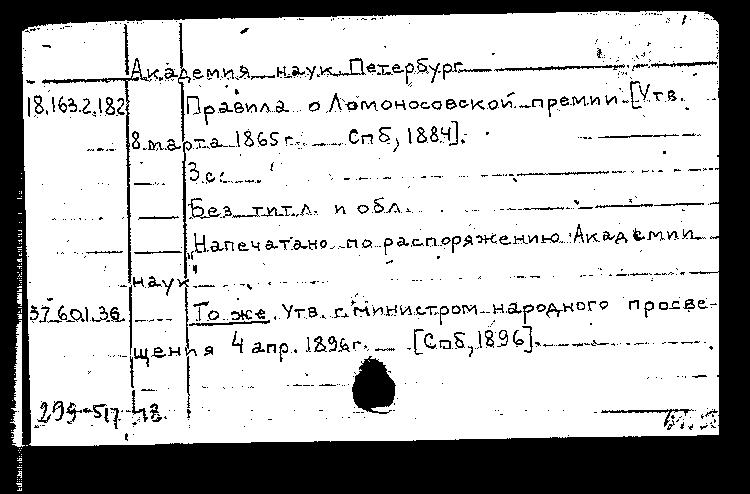 Академия наук. Петербург
18.163.2.182 Правила о Ломоносовской премии. [Утв.
8 марта 1865 г. Спб, 1884].
3 с.
Без титл. и обл.
"Напечатано по распоряжению Академии
наук"
37.60.1.36 То же. Утв. г. министром народного просве-
щения 4 апр. 1896 г. [Спб, 1896].